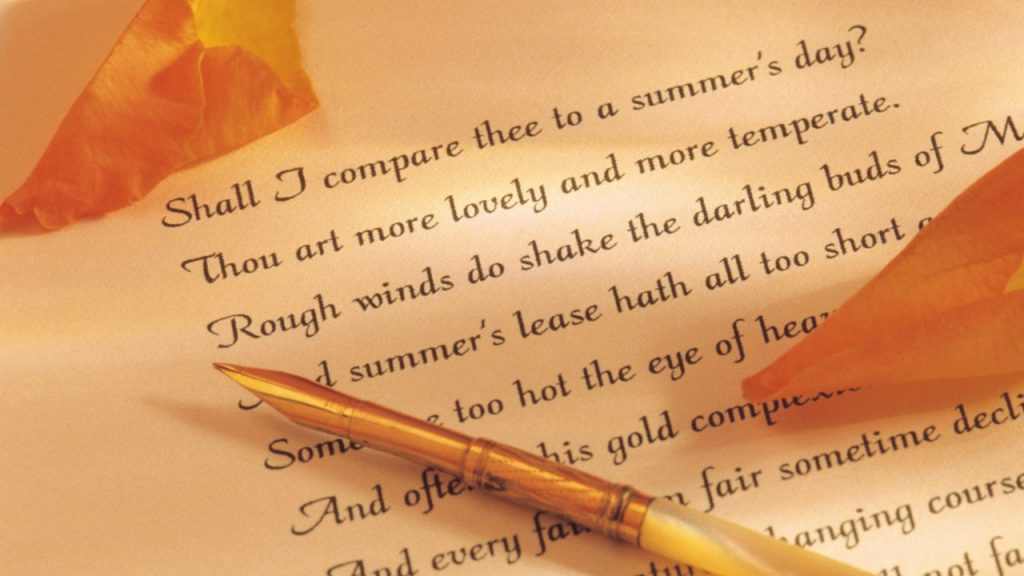 Shall I compare thee to a summer's day?
Thou art more lovely and more temperate.
Rough winds do shake the darling buds of M
summer's lease hath all too short a
Som too hot the eye of hea
And ofte his gold comple
And every fai fair sometime decli
hanging course
not fa